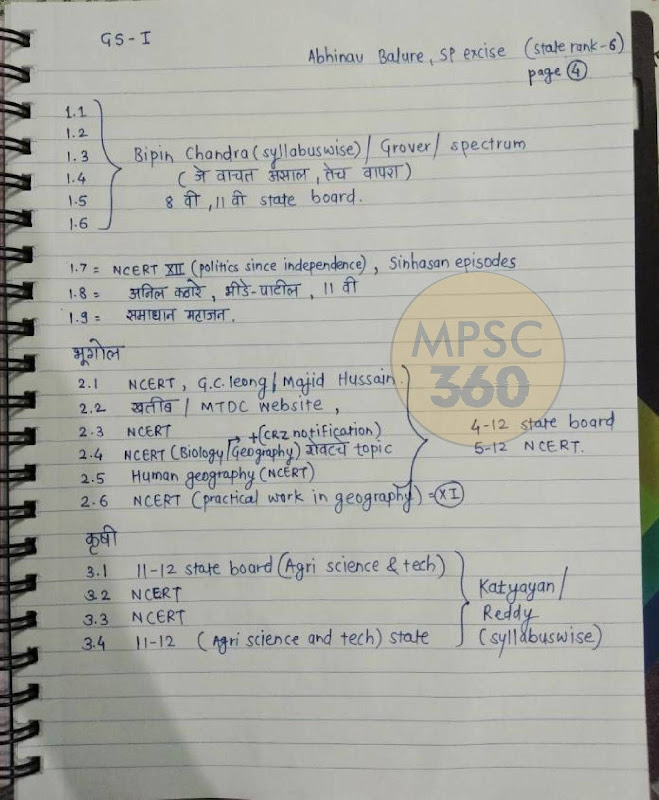 GS-I
Abhinav Balure, SP excise (state rank-6)
page 4
1.1
1.2
1.3 Bipin Chandra (syllabuswise) / Grover / spectrum
1.4 (जे वाचत असाल, तेच वापरा)
1.5 8 वी, 11 वी state board.
1.6
1.7 = NCERT XII (politics since independence), Sinhasan episodes
1.8 = अनिल कठारे, भीडे-पाटील, 11 वी
1.9 = समाधान महाजन.
भूगोल
2.1 NCERT, G.C. leong / Majid Hussain.
2.2 खतीब / MTDC website,
2.3 NCERT +(CRZ notification)
2.4 NCERT (Biology / Geography) शेवटचे topic
2.5 Human geography (NCERT)
2.6 NCERT (practical work in geography) = XI
4-12 state board
5-12 NCERT.
MPSC
360
कृषी
3.1 11-12 state board (Agri science & tech)
3.2 NCERT
3.3 NCERT
3.4 11-12 (Agri science and tech) state
Katyayan /
Reddy
(syllabuswise)